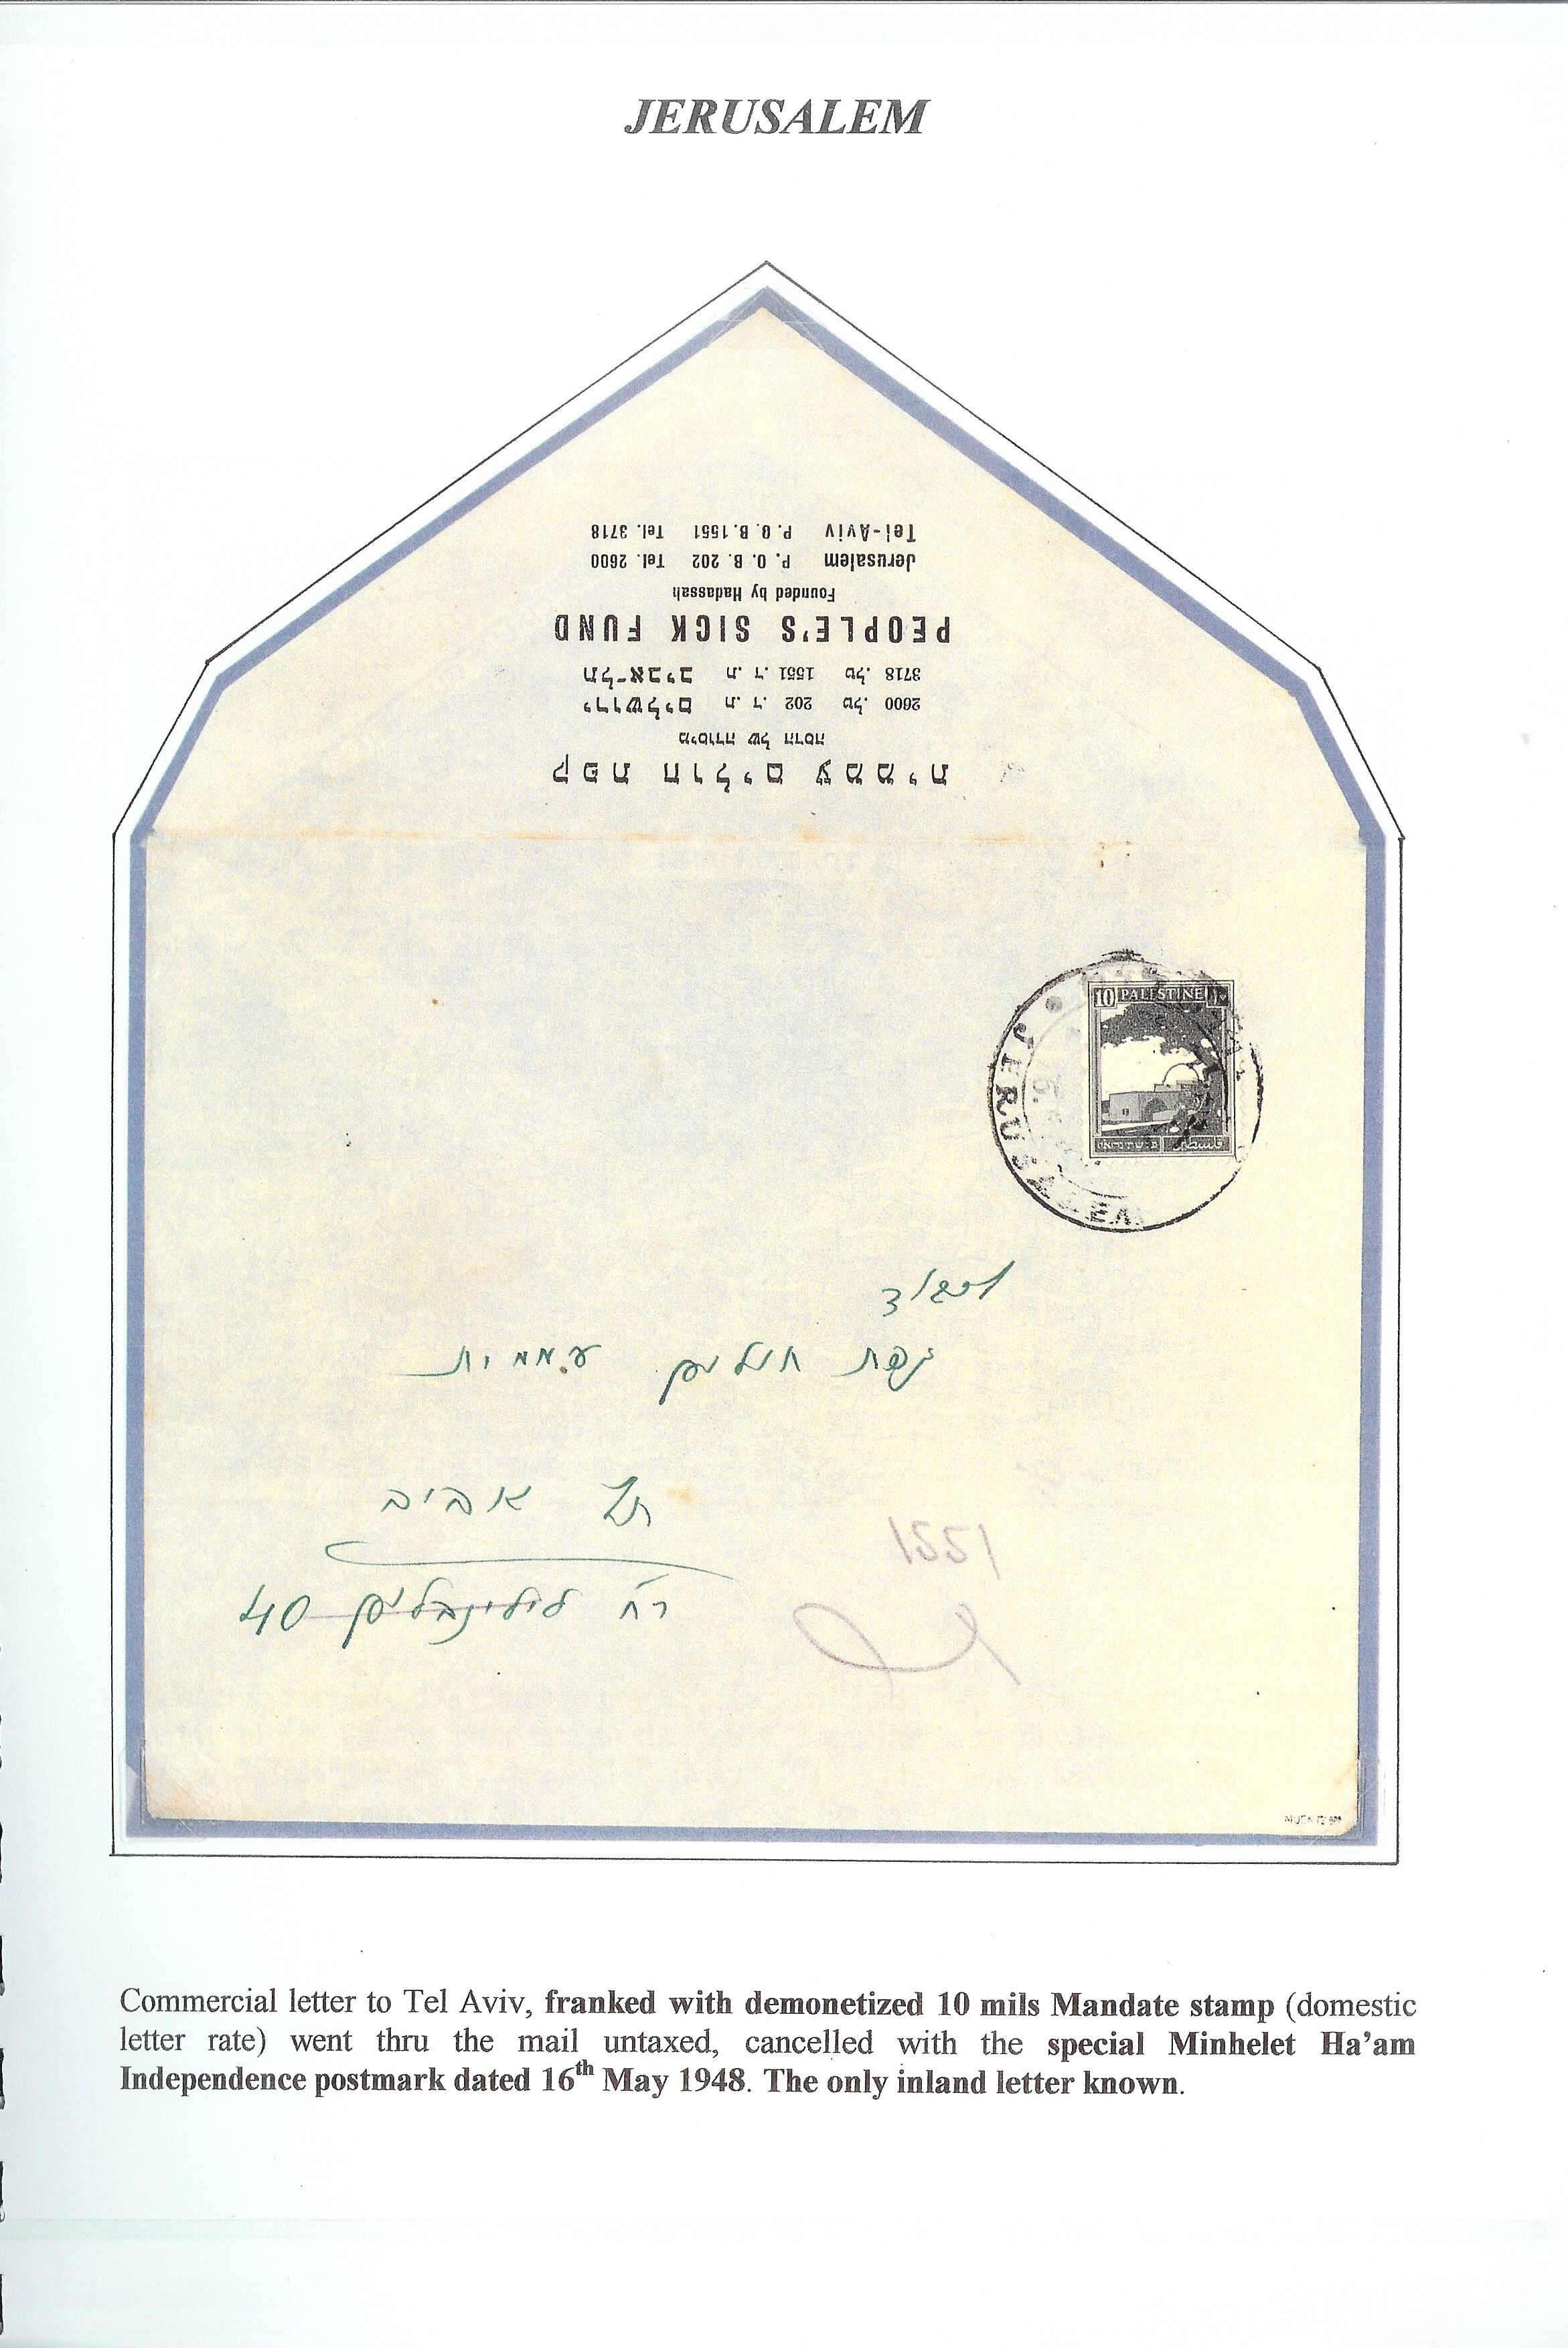 JERUSALEM
קפת חולים עממית
מיסודה של הדסה
ירושלים ת. ד. 202 טל. 2600
תל-אביב ת. ד. 1551 טל. 3718
PEOPLE'S SICK FUND
Founded by Hadassah
Jerusalem P. O. B. 202 Tel. 2600
Tel-Aviv P. O. B. 1551 Tel. 3718
10 PALESTINE ١٠
فلسطين
JERUSALEM
לכבוד
קפת חולים עממית
תל אביב
1551
רח' לילינבלום 40
Commercial letter to Tel Aviv, franked with demonetized 10 mils Mandate stamp (domestic
letter rate) went thru the mail untaxed, cancelled with the special Minhelet Ha'am
Independence postmark dated 16th May 1948. The only inland letter known.